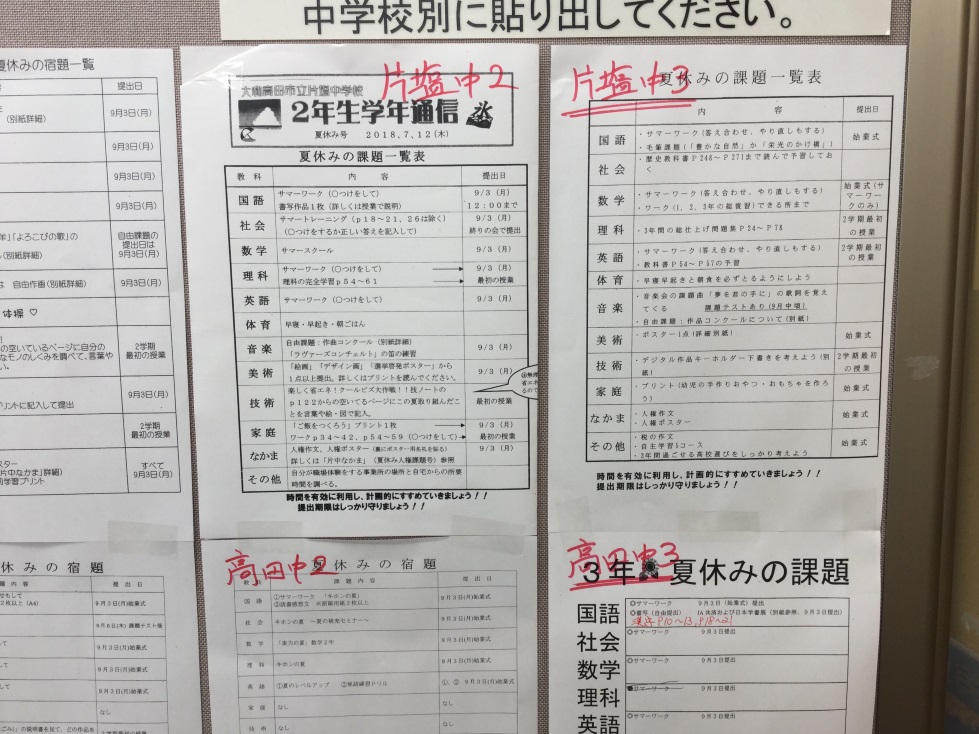 中学校別に貼り出してください。
夏休みの宿題一覧
提出日
(別紙詳細)
9月3日(月)
9月3日(月)
9月3日(月)
9月3日(月)
自由課題の
提出日は
9月3日(月)
自由作画(別紙詳細)
9月3日(月)
体操♡
2学期
最初の授業
プリントに記入して提出
9月3日(月)
2学期
最初の授業
すべて
9月3日(月)
片塩中2
大和高田市立片塩中学校
2年生学年通信
夏休み号 2018.7.12(木)
夏休みの課題一覧表
教科 内容 提出日
国語 サマーワーク(○つけをして) 9/3(月)
書写作品1枚(詳しくは授業で説明) 12:00まで
社会 サマートレーニング(p18~21、26は除く) 9/3(月)
(○つけをするか正しい答えを記入して) 終りの会で提出
数学 サマースクール 9/3(月)
理科 サマーワーク(○つけをして) 9/3(月)
理科の完全学習p54~61 最初の授業
英語 サマーワーク(○つけをして) 9/3(月)
体育 早寝・早起き・朝ごはん
音楽 自由課題:作曲コンクール(別紙詳細) 9/3(月)
「ラヴァーズコンチェルト」の笛の練習
美術 「絵画」「デザイン画」「選挙啓発ポスター」から 9/3(月)
1点以上提出。詳しくはプリントを読んでください。
技術 楽しく省エネ!クールビズ大作戦!!技ノートの 最初の授業
p122からの空いてるページにこの夏取り組んだこ
とを言葉や絵・図で記入。
家庭 「ご飯をつくろう」プリント1枚 9/3(月)
ワークp34~42、p54~59(○つけをして) 最初の授業
なかま 人権作文、人権ポスター 9/3(月)
詳しくは「片中なかま」(夏休み人権課題号)参照
その他 自分が職場体験をする事業所の場所と自宅からの所要
時間を調べる。
時間を有効に利用し、計画的にすすめていきましょう!!
提出期限はしっかり守りましょう!!
片塩中3
夏休みの課題一覧表
内容 提出日
国語 ・サマーワーク(答え合わせ、やり直しもする) 始業式
・毛筆課題(「豊かな自然」か「栄光のかけ橋」)
社会 ・歴史教科書P248~P271まで読んで予習してお
く
数学 ・サマーワーク(答え合わせ、やり直しもする) 始業式(サマーワークのみ)
・ワーク(1、2、3年の総復習)できる所まで
理科 ・3年間の総仕上げ問題集P24~P78 2学期最初の授業
英語 ・サマーワーク(答え合わせ、やり直しもする) 2学期最初の授業
・教科書P54~P57の予習
体育 ・早寝早起きと朝食を必ずとるようにしよう
音楽 ・音楽会の課題曲「夢を君の手に」の歌詞を覚え
てくる 課題テストあり(9月中頃)
・自由課題:作品コンクールについて(別紙)
美術 ・ポスター1点(詳細別紙) 始業式
技術 ・デジタル作品キーホルダー下書きを考えよう(別紙) 2学期最初の授業
家庭 ・プリント(幼児の手作りおやつ・おもちゃを作ろう) 始業式
なかま ・人権作文 始業式
・人権ポスター
その他 ・税の作文 始業式
・自主学習5コース
・2年間過ごせる高校選びをしっかり考えよう
時間を有効に利用し、計画的にすすめていきましょう!!
提出期限はしっかり守りましょう!!
休みの宿題
題内容 提出日
9月3日(月)始業式
9月6日(木)課題テスト後
9月3日(月)始業式
9月3日(月)始業式
9月3日(月)始業式
なし
高田中2
夏休みの宿題
課題内容 提出日
国語 ①サマーワーク 「キホンの夏」 9月3日(月)始業式
②読書感想文
社会 キホンの夏 9月3日(月)始業式
数学 数学2年 9月3日(月)始業式
理科 キホンの夏 9月3日(月)始業式
英語 ①夏のレベルアップ ②単語練習ドリル ①、② 9月3日(月)始業式
家庭 なし なし
技術 なし なし
高田中3
3年 夏休みの課題
国語 ◎サマーワーク 9月3日(始業式)提出
◎書写(自由提出) JA共済および日本学書展(別紙参照、9月3日提出)
漢字P10~13、P18~21
社会 ◎サマーワーク 9月3日提出
数学 ◎サマーワーク 9月3日提出
理科 9月3日提出
英語 ◎サマーワーク 9月3日提出